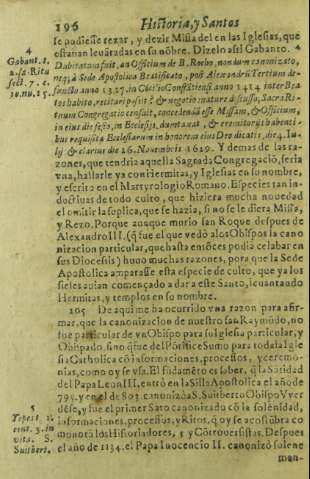 196 Historia, y Santos
se pudiesse rezar, y dezir Missa del en las Iglesias, que
estavan levantadas en su nõbre. Dizelo assi Gabanto. 4
4
Gabant. t.
Dubitatum fuit, an Officium de B. Rocho, nondum canonizato,
fect. 7. c.
anno 1327. in Cõcilio Constãtiensi anno 1414 inter Bea
tos habito, recitari possit? & negotio mature discusso, Sacra Ri-
tuum Congregatio censuit, concedendã esse Missam, & Officium,
in eius die festo, in Ecclesijs,
bus requisita Ecclesiarum in honorem eius Deo dicatis, die 4. Iu-
lij & clarius die 26. Novembris 1629. Y demas de las ra-
zones, que tendria aquella Sagrada Congregaciõ, seria
vna, hallarle ya con Hermitas, y Iglesias en su nombre,
y escrito en el Martyrologio Romano. Especies tan in-
ductiuas de todo culto, que hiziera mucha novedad
el omitir la suplica, que se hazia, si no se le diera Missa,
y Rezo. Porque aunque murio san Roque despues de
Alexandro III. (q̃ fue el que vedò a los Obispos la cano
nizacion particular, que hasta entõces podia celebrar en
sus Diocesis) huuo muchas razones, para que la Sede
Apostolica amparasse esta especie de culto, que ya los
fieles auian començado a dar a este Santo, levantando
Hermitas, y templos en su nombre.
105 De aqui me ha ocurrido vna razon para afir-
mar, que la canonizacion de nuestro san Raymũdo, no
fue particular de vn Obispo para su Iglesia particular, y
Obispado, sino que del Põtifice Sumo para toda la Igle
sia Catholica cõ informaciones, processos, y ceremo-
nias, como oy se vsa. El fũdamẽto es saber, q̃ la Sãtidad
del Papa Leon III. entrò en la Silla Apostolica el año de
799. y en el de 803. canonizò a S. Suitberto Obispo Vver
dẽse, y fue el primer Sãto canonizado cõ la solenidad,
informaciones, processus, y Ritos, q̃ oy se acostũbra co
mo notã los Historiadores, 5 y Cõtrouersistas. Despues
el año de 1134. el Papa Inocencio II. canonizò solene
5
vita. S.
Suitbert.
men-